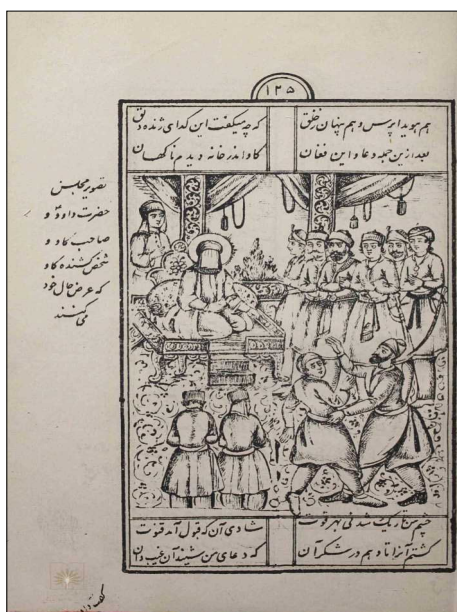 ۱۲۵
هم هویدا پرس و هم پنهان ز خلق
که چه میگفت این گدای ژنده دلق
بعد ازین جمله دعا و این فغان
گاو اندر خانه دیدم ناگهان
تصویر مجلس
حضرت داوود و
صاحب گاو و
شخص کشنده گاو
که عرض حال خود
می کنند
چشم من تاریک شد نی بهر قوت
شادی آن که قبول آمد قنوت
کشتم آنرا تا دهم در شکر آن
که دعای من شنید آن غیب دان